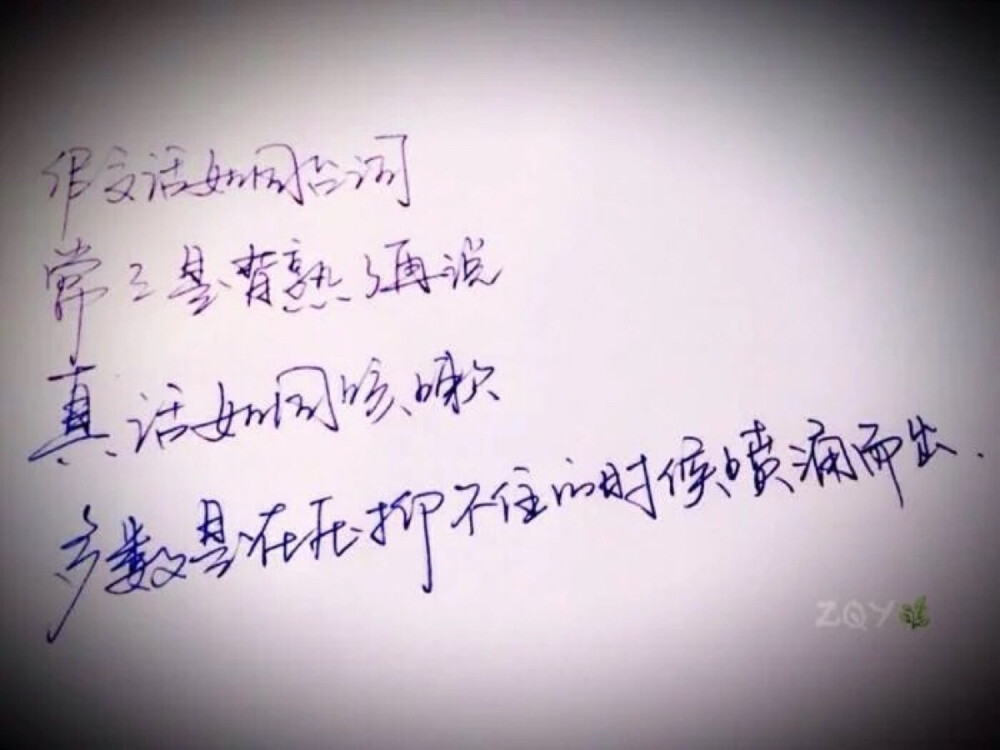 假话如同台词
常常是背熟了再说
真话如同咳嗽
多数是在压抑不住的时候喷涌而出.
ZQY